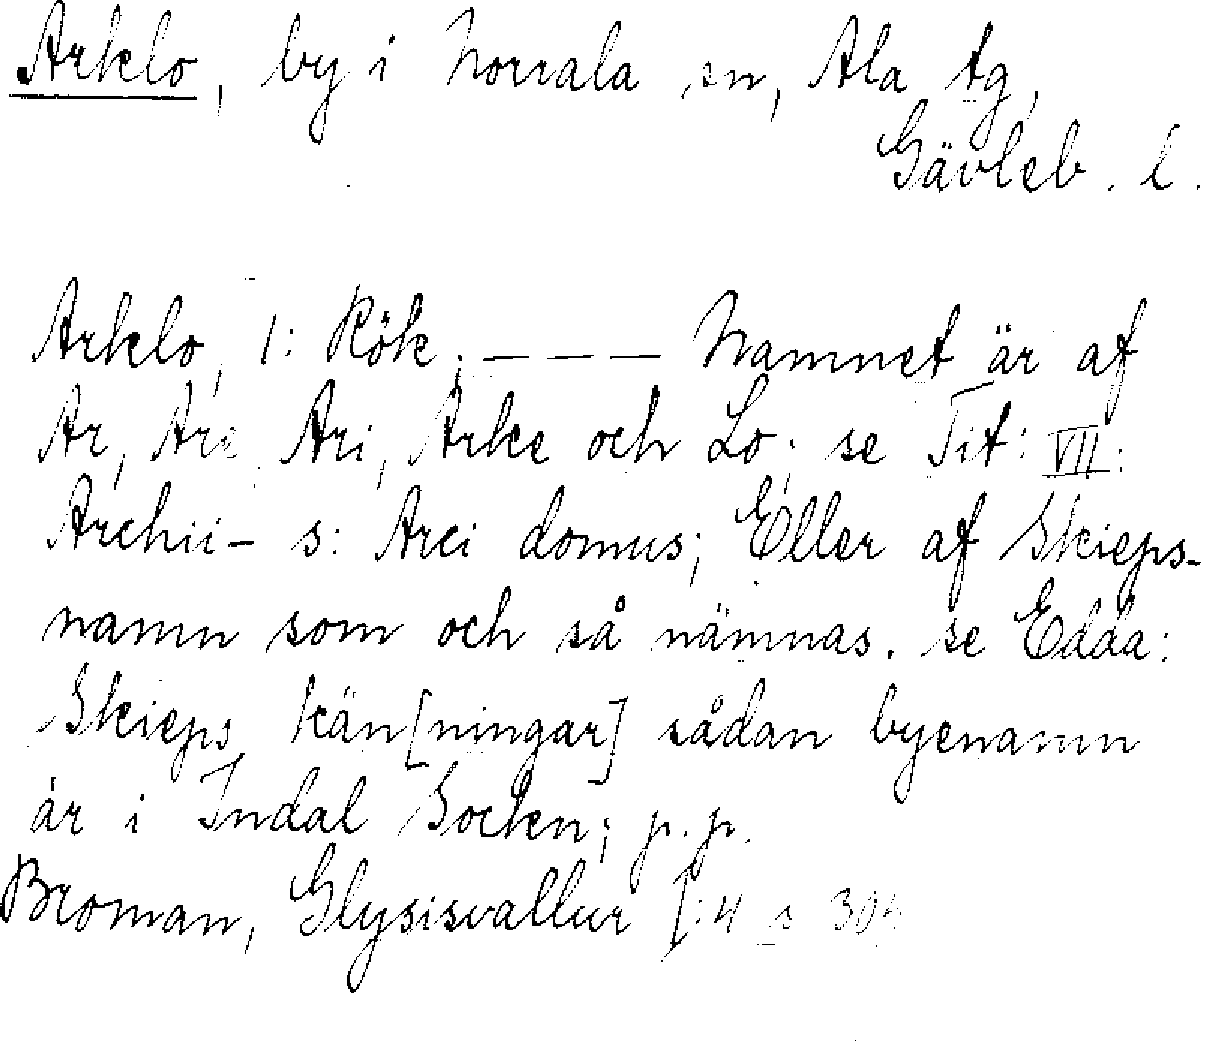 Arklo, by i Norrala sn, Ala tg,
Gävleb. l.
Arklo, 1: Rök; – – – – Namnet är af
Ar, Are, Ari, Arke och Lo; se Tit: VII:
Archii- s: Arei domus; Eller af Skieps-
namn som och så nämnas. se Edda:
Skieps kän[ningar] sådan byenamn
är i Indal Socken; p.p.
Broman, Glysisvallur I:4 s